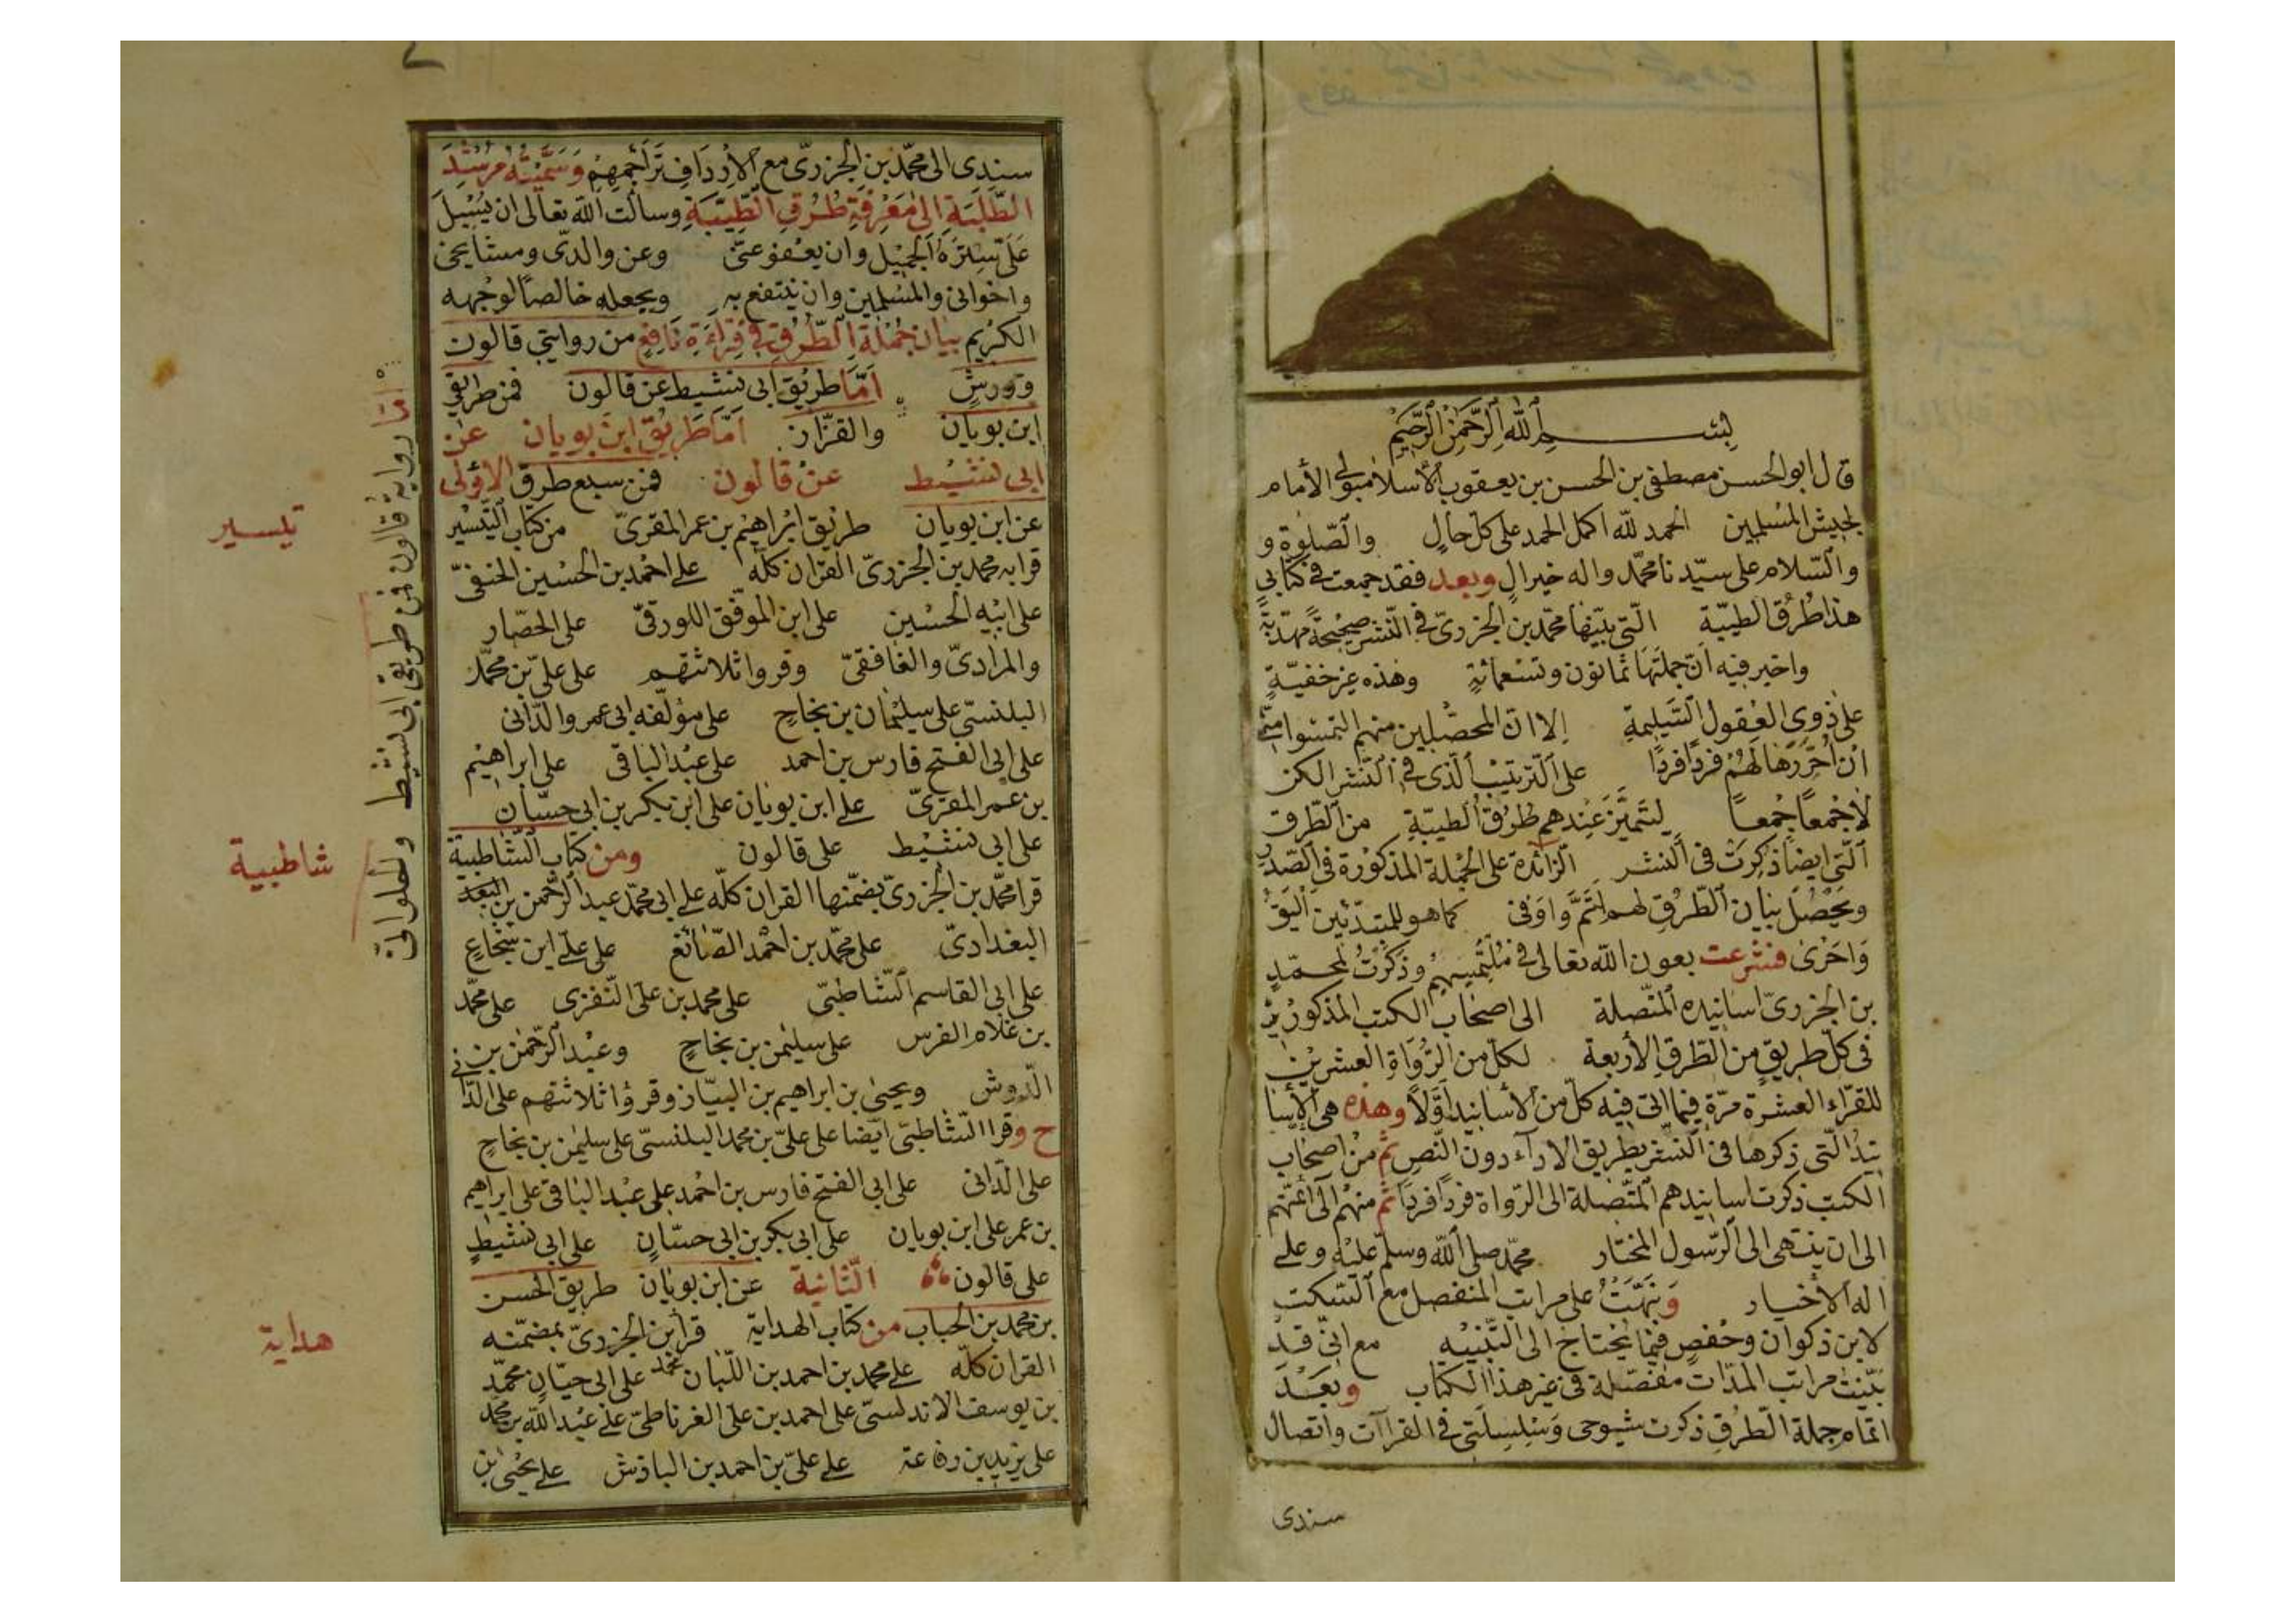 بسم الله الرحمن الرحيم
قال ابو الحسن مصطفى بن الحسن بن يعقوب الأسلامبولى الأمام
لجيش المسلمين الحمد لله اكمل الحمد على كل حال والصلوة و
والسلام على سيدنا محمد واله خير ال وبعد فقد جمعت فى كتابى
هذا طرق الطيبة التى بينها محمد بن الجزرى فى النشر صحيحة مهذبة
واخبر فيه ان جملتها ثمانون وتسعمائة وهذه غير خفية
على ذوى العقول السليمة الا ان المحصلين منهم التمسوا منى
ان احررها لهم فردا فردا على الترتيب الذى فى النشر لكن
لا جمعا جمعا ليتميز عندهم طرق الطيبة من الطرق
التى ايضا ذكرت فى النشر الزائدة على الجملة المذكورة فى الصدر
ويحصل بيان الطرق لهم اتم واوفى كما هو للمبتدئين اليق
واحرى فشرعت بعون الله تعالى فى ملتمسهم وذكرت لمحمد
بن الجزرى اسانيده المتصلة الى اصحاب الكتب المذكورين
فى كل طريق من الطرق الأربعة لكل من الرواة العشرين
للقراء العشرة مرة فيما اتى فيه كل من الأسانيد اولا وهذه هى الأسا
نيد التى ذكرها فى النشر بطريق الاداء دون النص ثم من اصحاب
الكتب ذكرت اسانيدهم المتصلة الى الرواة فردا فردا ثم منهم الى ائمتهم
الى ان ينتهى الى الرسول المختار محمد صلى الله وسلم عليه وعلى
اله الأخيار ونبهت على مراتب المنفصل مع السكت
لابن ذكوان وحفص فيما يحتاج الى التنبيه مع انى قد
بينت مراتب المدات مفصلة فى غير هذا الكتاب وبعد
اتمام جملة الطرق ذكرت شيوخى وسلسلتى فى القراآت واتصال
سندى
سندى الى محمد بن الجزرى مع الأرداف تراجمهم وسميته مرشد
الطلبة الى معرفة طرق الطيبة وسالت الله تعالى ان يسبل
على ستره الجميل وان يعفو عنى وعن والدى ومشايخى
واخوانى والمسلمين وان ينتفع به ويجعله خالصا لوجهه
الكريم بيان جملة الطرق فى قراءة نافع من روايتى قالون
وورش اما طريق ابى نشيط عن قالون فمن طريقى
ابن بويان والقزاز اما طريق ابن بويان عن
ابى نشيط عن قالون فمن سبع طرق الاولى
عن ابن بويان طريق ابراهيم بن عمر المقرى من كتاب التيسير
قرا به محمد بن الجزرى القران كله على احمد بن الحسين الحنفى
على ابيه الحسين على ابن الموفق اللورقى على الحصار
والمرادى والغافقى وقروا ثلاثتهم على على بن محمد
البلنسى على سليمان بن نجاح على مؤلفه ابى عمرو الدانى
على ابى الفتح فارس بن احمد على عبد الباقى على ابراهيم
بن عمر المقرى على ابن بويان على ابن بكر بن ابى حسان
على ابى نشيط على قالون ومن كتاب الشاطبية
قرا محمد بن الجزرى بضمنها القران كله على ابى محمد عبد الرحمن بن البغد
البغدادى على محمد بن احمد الصائغ على على ابن شجاع
على ابى القاسم الشاطبى على محمد بن على النفزى على محمد
بن غلام الفرس على سليمن بن نجاح وعبد الرحمن بن
الدوش ويحيى بن ابراهيم بن البياز وقرؤا ثلاثتهم على الدانى
ح وقرا الشاطبى ايضا على على بن محمد البلنسى على سليمن بن نجاح
على الدانى على ابى الفتح فارس بن احمد على عبد الباقى على ابراهيم
بن عمر على ابن بويان على ابى بكر بن ابى حسان على ابى نشيط
على قالون الثانية عن ابن بويان طريق الحسن
بن محمد بن الحباب من كتاب الهداية قرا بن الجزرى بمضمنه
القران كله على محمد بن احمد بن اللبان على ابى حيان محمد
بن يوسف الاندلسى على احمد بن على الغرناطى على عبد الله بن محمد
على يزيد بن رفاعة على على بن احمد بن الباذش على يحيى بن
اما رواية قالون فمن طريقى ابى نشيط والحلوانى
تيسير
شاطبية
هداية